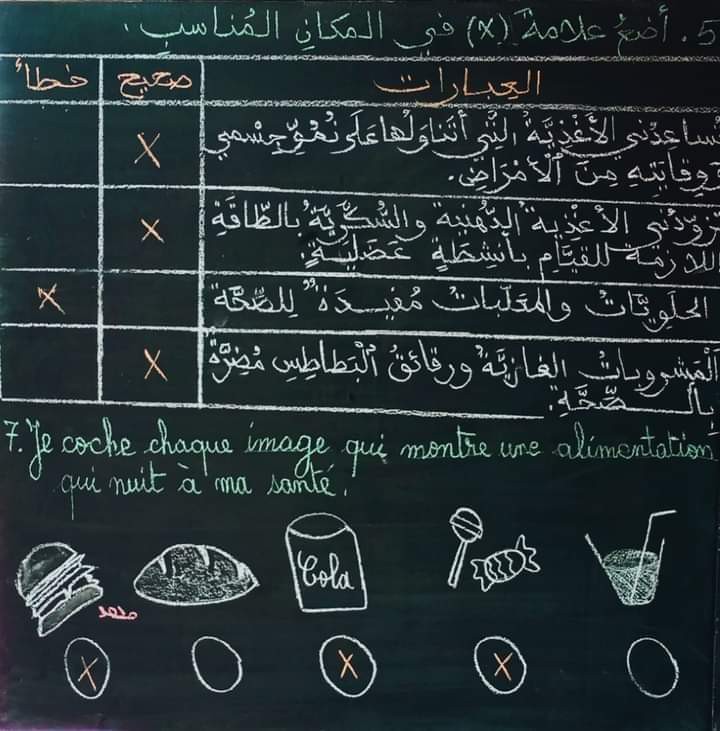 5. أضعُ علامةَ (x) في المكانِ المُناسبِ.
العبارات صحيح خطأ
تُساعِدُني الأَغْذِيَةُ الَّتِي أتَناوَلُها عَلَى نُمُوِّ جِسْمي X
وَوِقايَتِهِ مِنَ الْأَمْرَاضِ.
تُزَوِّدُني الأغذِيةُ الدُّهْنِية والسُّكَّرِيَّةُ بالطَّاقَةِ X
اللازمة للقِيَّامِ بأَنْشِطَةٍ عَضَلِيَّةٍ.
الحلَوِيَّاتُ والمُعَلَّباتُ مُفيدَةٌ لِلصِّحَّة X
اَلْمَشروباتُ الغازِيَّةُ ورقائقُ الْبَطاطِسِ مُضِرَّةٌ X
بِالصِّحَّةِ.
7. Je coche chaque image qui montre une alimentation
qui nuit à ma santé.
Cola
X X X